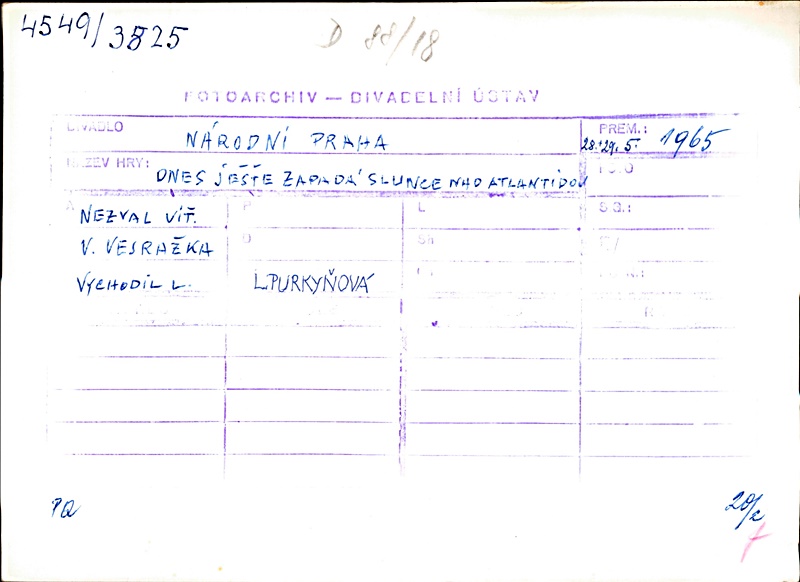 4549/3825
D 88/18
FOTOARCHIV — DIVADELNÍ ÚSTAV
DIVADLO NÁRODNÍ PRAHA
PREM.: 28.+29.5. 1965
NÁZEV HRY: DNES JEŠTĚ ZAPADÁ SLUNCE NAD ATLANTIDOU
A NEZVAL VÍT.
P
L
V. VESRAŽKA
VYCHODIL L.
L.PURKYŇOVÁ
PQ